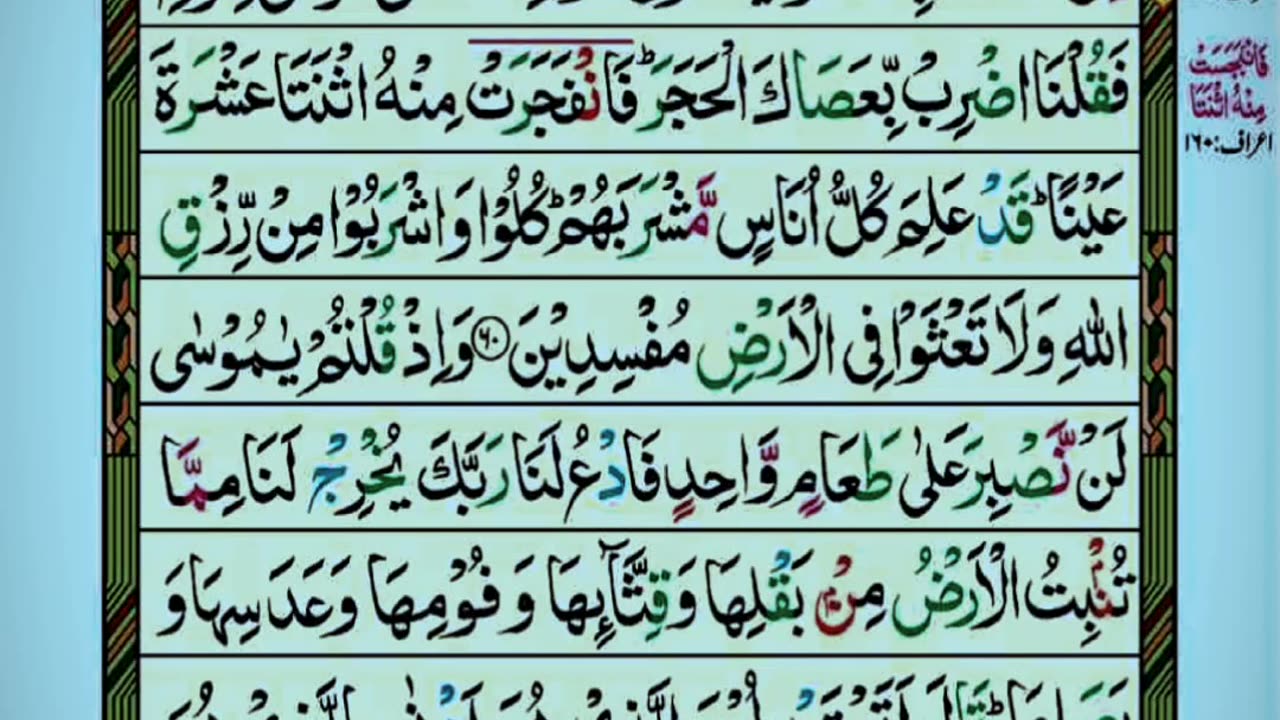 فَقُلْنَا اضْرِبْ بِّعَصَاكَ الْحَجَرَ ؕ فَانْفَجَرَتْ مِنْهُ اثْنَتَا عَشْرَةَ
عَيْنًا ؕ قَدْ عَلِمَ كُلُّ اُنَاسٍ مَّشْرَبَهُمْ ؕ كُلُوْا وَاشْرَبُوْا مِنْ رِّزْقِ
اللّٰهِ وَلَا تَعْثَوْا فِى الْاَرْضِ مُفْسِدِيْنَ ۶۰ وَاِذْ قُلْتُمْ يٰمُوْسٰى
لَنْ نَّصْبِرَ عَلٰى طَعَامٍ وَّاحِدٍ فَادْعُ لَنَا رَبَّكَ يُخْرِجْ لَنَا مِمَّا
تُنْۢبِتُ الْاَرْضُ مِنْۢ بَقْلِهَا وَقِثَّآئِهَا وَفُوْمِهَا وَعَدَسِهَا وَ
فَانْۢبَجَسَتْ
مِنْهُ اثْنَتَا
اعراف:۱۶۰